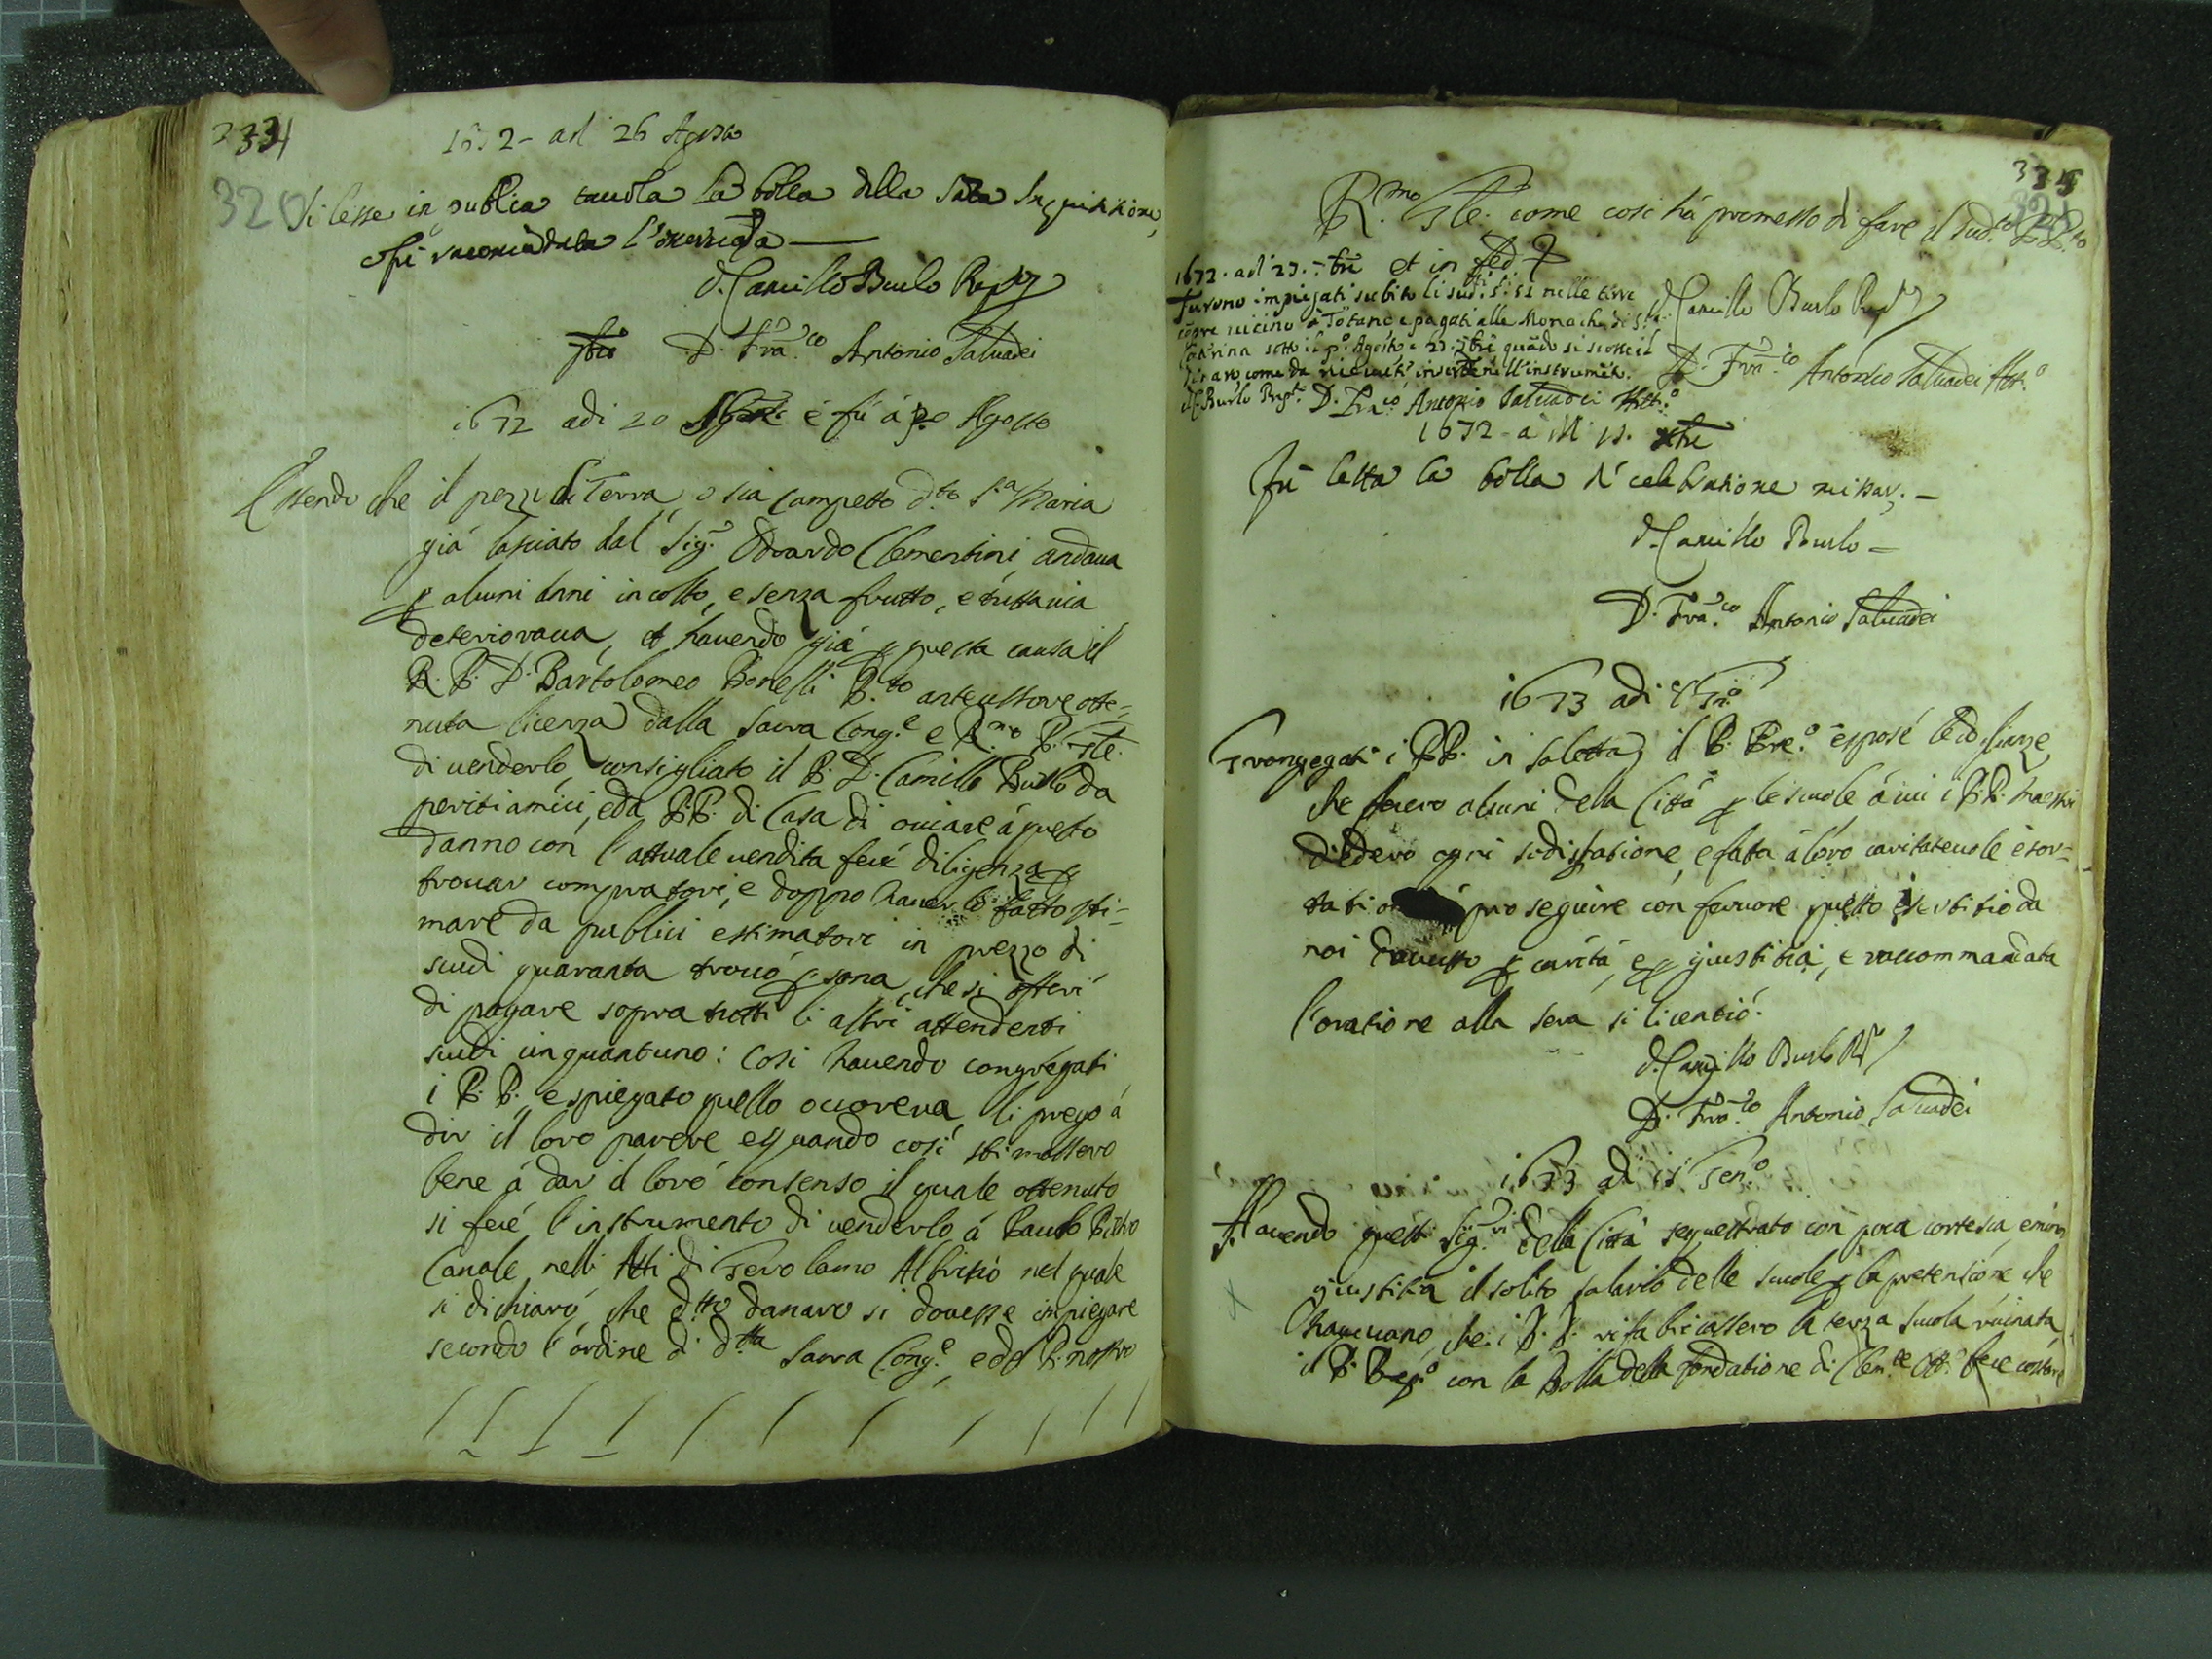 334
320
1672 - adi 26 Agosto
Si lesse in publica tavola la bolla della Sãta Inquisitione,
e fù racomãdata l'osservãza
D. Camillo Burlo Prep.to
D. Frã.co Antonio Salvadei
1672 adi 20 è fù á p.o Agosto
Essendo che il pezzo di Terra, o sia Campetto d.to S.a Maria
giá lasciato dal Sig.r Odoardo Clementini, andava
p alcuni anni incolto, e senza frutto, e tuttavia
deteriorava, et havendo giá p questa causa il
R. P. D. Bartolomeo Bonelli P.to antecessore otte=
nuta licenza dalla Sacra Cong.e e R.mo P. Gñle.
di venderlo, consigliato il P. D. Camillo Burlo da
periti amici, e da P.P. di Casa di oviare á questo
danno con l'attuale vendita fece diligenza p
trovar compratori, e doppo haverlo fatto sti=
mare da publici estimatori in prezzo di
scudi quaranta trovó p sona, che si offerì
di pagare sopra tutti li altri attendenti
scudi cinquantuno: Cosi havendo congregati
i P.P. e spiegato quello occoreva, li pregó á
dir il loro parere e quando cosí stimassero
bene á dar il loró consenso il quale ottenuto
si fece l'instrumento di venderlo á Paulo
Canale nelli Atti di Gerolamo Albritió nel quale
si dichiaró, che d.tto danaro si dovesse impiegare
secondo l'órdine di d.tta Sacra Cong.e, e del P. nostro
335
321
R.mo Gñle. come cosi há promesso di fare il sud.to P. P.to
et in fed.
1672. adi 23. 7bre
Furono impiegati subito li sud.ti s. 51 nelle terre
vicino á e pagati alle Monache di S.ta
Catarina sotto il p.o Agosto e 23. 7bre quãdo si scosse il
dinaro come da inserte nell'instrumẽto.
D. C. Burlo Prep.to D. Frã.co Antonio Salvadei Att.o
D. Camillo Burlo Prep.to
D. Frã.co Antonio Salvadei Att.o
1672 - a di 15. xbre
Fù letta la bolla de celebratione missar. -
D. Camillo Burlo -
D. Frã.co Antonio Salvadei
1673 adi Gen.o
Congregati i P.P. in saletta, il P. Pre.o esposé le doglianze
che fecero alcuni della Cittá p le scuole á cui i P.P. Maestri
diedero ogni sodisfatione, e fata á loro caritatevole esor=
tatione á pro seguire con fervore questo esertitio da
noi dovuto p caritá, e p giustitia, e raccommandata
l'oratione alla sera si licentió.
D. Camillo Burlo P.to
D. Frã.co Antonio Salvadei
1673 adi 15 Gen.o
Havendo questi Sig.ri della Cittá sequestrato con poca cortesia, e minor
giustitia il solito salario delle scuole p la pretensione che
havevano, che i P.P. rifabricassero la terza Scuola ruinata,
il P. Prep.o con la Bolla della fondatione di Clem.te Ott.o fece costare